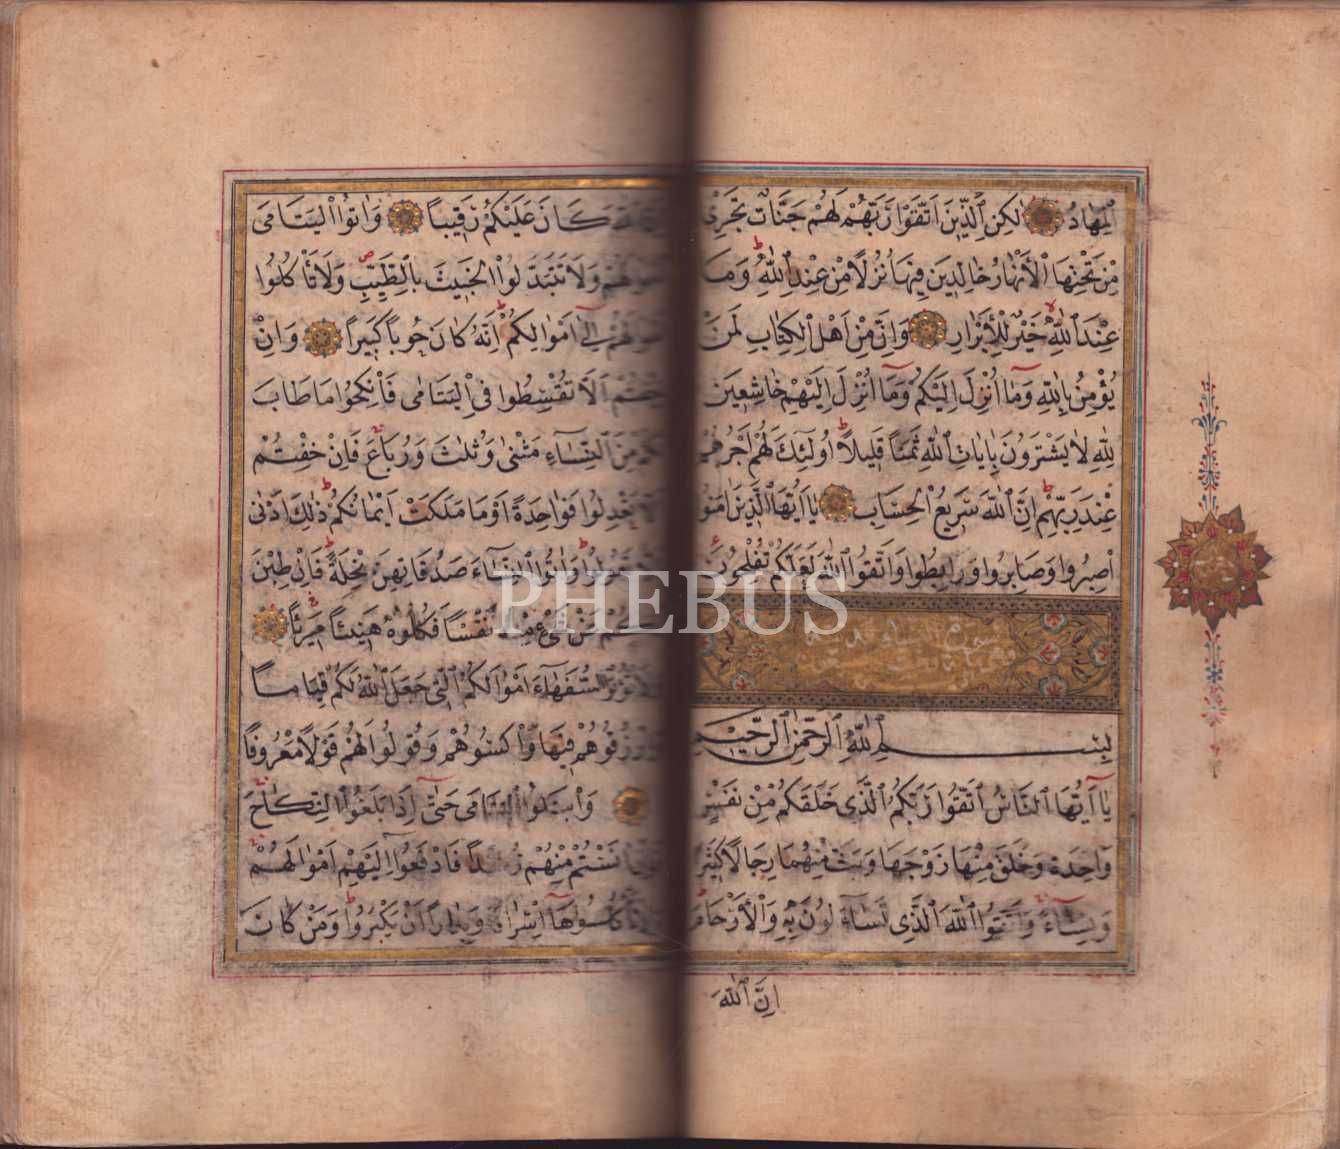 الْمِهَادُ لٰكِنِ الَّذِينَ اتَّقَوْا رَبَّهُمْ لَهُمْ جَنَّاتٌ تَجْرِي
مِنْ تَحْتِهَا الْاَنْهَارُ خَالِدِينَ فِيهَا نُزُلًا مِنْ عِنْدِ اللّٰهِ وَمَا
عِنْدَ اللّٰهِ خَيْرٌ لِلْاَبْرَارِ وَاِنَّ مِنْ اَهْلِ الْكِتَابِ لَمَنْ
يُؤْمِنُ بِاللّٰهِ وَمَا اُنْزِلَ اِلَيْكُمْ وَمَا اُنْزِلَ اِلَيْهِمْ خَاشِعِينَ
لِلّٰهِ لَا يَشْتَرُونَ بِاٰيَاتِ اللّٰهِ ثَمَنًا قَلِيلًا اُولٰئِكَ لَهُمْ اَجْرُهُمْ
عِنْدَ رَبِّهِمْ اِنَّ اللّٰهَ سَرِيعُ الْحِسَابِ يَا اَيُّهَا الَّذِينَ اٰمَنُوا
اصْبِرُوا وَصَابِرُوا وَرَابِطُوا وَاتَّقُوا اللّٰهَ لَعَلَّكُمْ تُفْلِحُونَ
سورة النساء
بِسْمِ اللّٰهِ الرَّحْمٰنِ الرَّحِيمِ
يَا اَيُّهَا النَّاسُ اتَّقُوا رَبَّكُمُ الَّذِي خَلَقَكُمْ مِنْ نَفْسٍ
وَاحِدَةٍ وَخَلَقَ مِنْهَا زَوْجَهَا وَبَثَّ مِنْهُمَا رِجَالًا كَثِيرًا
وَنِسَاءً وَاتَّقُوا اللّٰهَ الَّذِي تَسَاءَلُونَ بِهِ وَالْاَرْحَامَ
اِنَّ اللّٰهَ
كَانَ عَلَيْكُمْ رَقِيبًا وَاٰتُوا الْيَتَامَى
وَلَا تَتَبَدَّلُوا الْخَبِيثَ بِالطَّيِّبِ وَلَا تَأْكُلُوا
اِلَى اَمْوَالِكُمْ اِنَّهُ كَانَ حُوبًا كَبِيرًا وَاِنْ
خِفْتُمْ اَلَّا تُقْسِطُوا فِي الْيَتَامَى فَانْكِحُوا مَا طَابَ
لَكُمْ مِنَ النِّسَاءِ مَثْنَى وَثُلَاثَ وَرُبَاعَ فَاِنْ خِفْتُمْ
اَلَّا تَعْدِلُوا فَوَاحِدَةً اَوْ مَا مَلَكَتْ اَيْمَانُكُمْ ذٰلِكَ اَدْنَى
اَلَّا تَعُولُوا وَاٰتُوا النِّسَاءَ صَدُقَاتِهِنَّ نِحْلَةً فَاِنْ طِبْنَ
لَكُمْ عَنْ شَيْءٍ مِنْهُ نَفْسًا فَكُلُوهُ هَنِيئًا مَرِيئًا
وَلَا تُؤْتُوا السُّفَهَاءَ اَمْوَالَكُمُ الَّتِي جَعَلَ اللّٰهُ لَكُمْ قِيَامًا
وَارْزُقُوهُمْ فِيهَا وَاكْسُوهُمْ وَقُولُوا لَهُمْ قَوْلًا مَعْرُوفًا
وَابْتَلُوا الْيَتَامَى حَتَّى اِذَا بَلَغُوا النِّكَاحَ
مِنْهُمْ رُشْدًا فَادْفَعُوا اِلَيْهِمْ اَمْوَالَهُمْ
تَأْكُلُوهَا اِسْرَافًا وَبِدَارًا اَنْ يَكْبَرُوا وَمَنْ كَانَ
PHEBUS